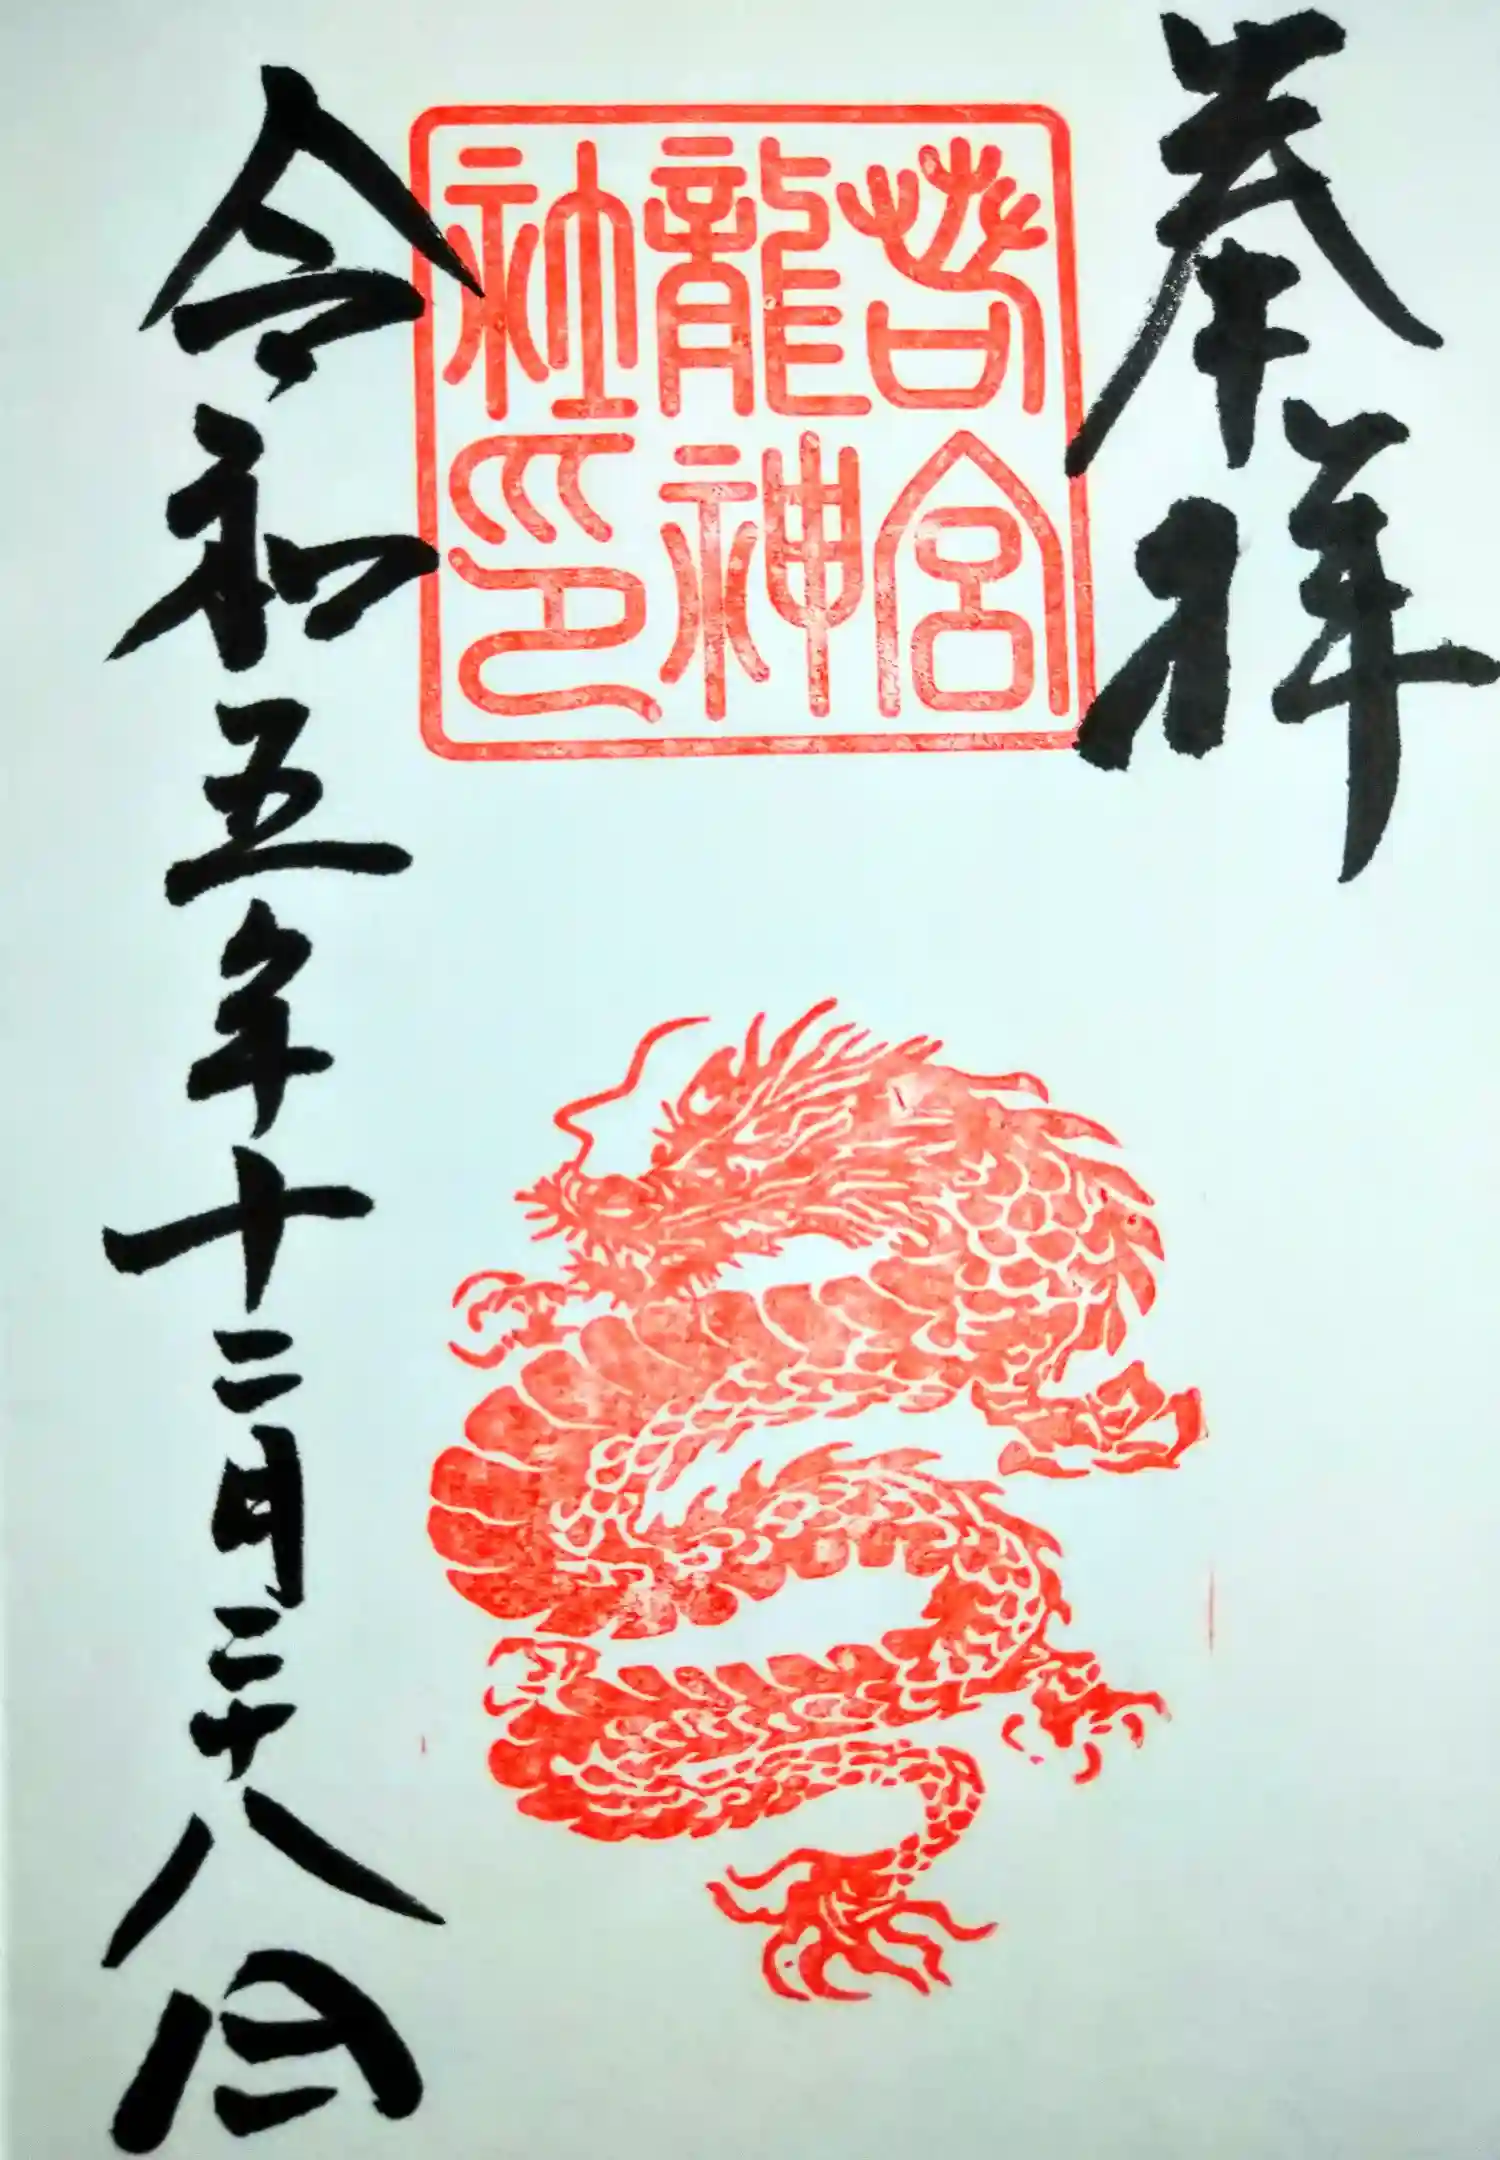 奉拝
若宮
龍神
社印
令和五年十二月二十八日